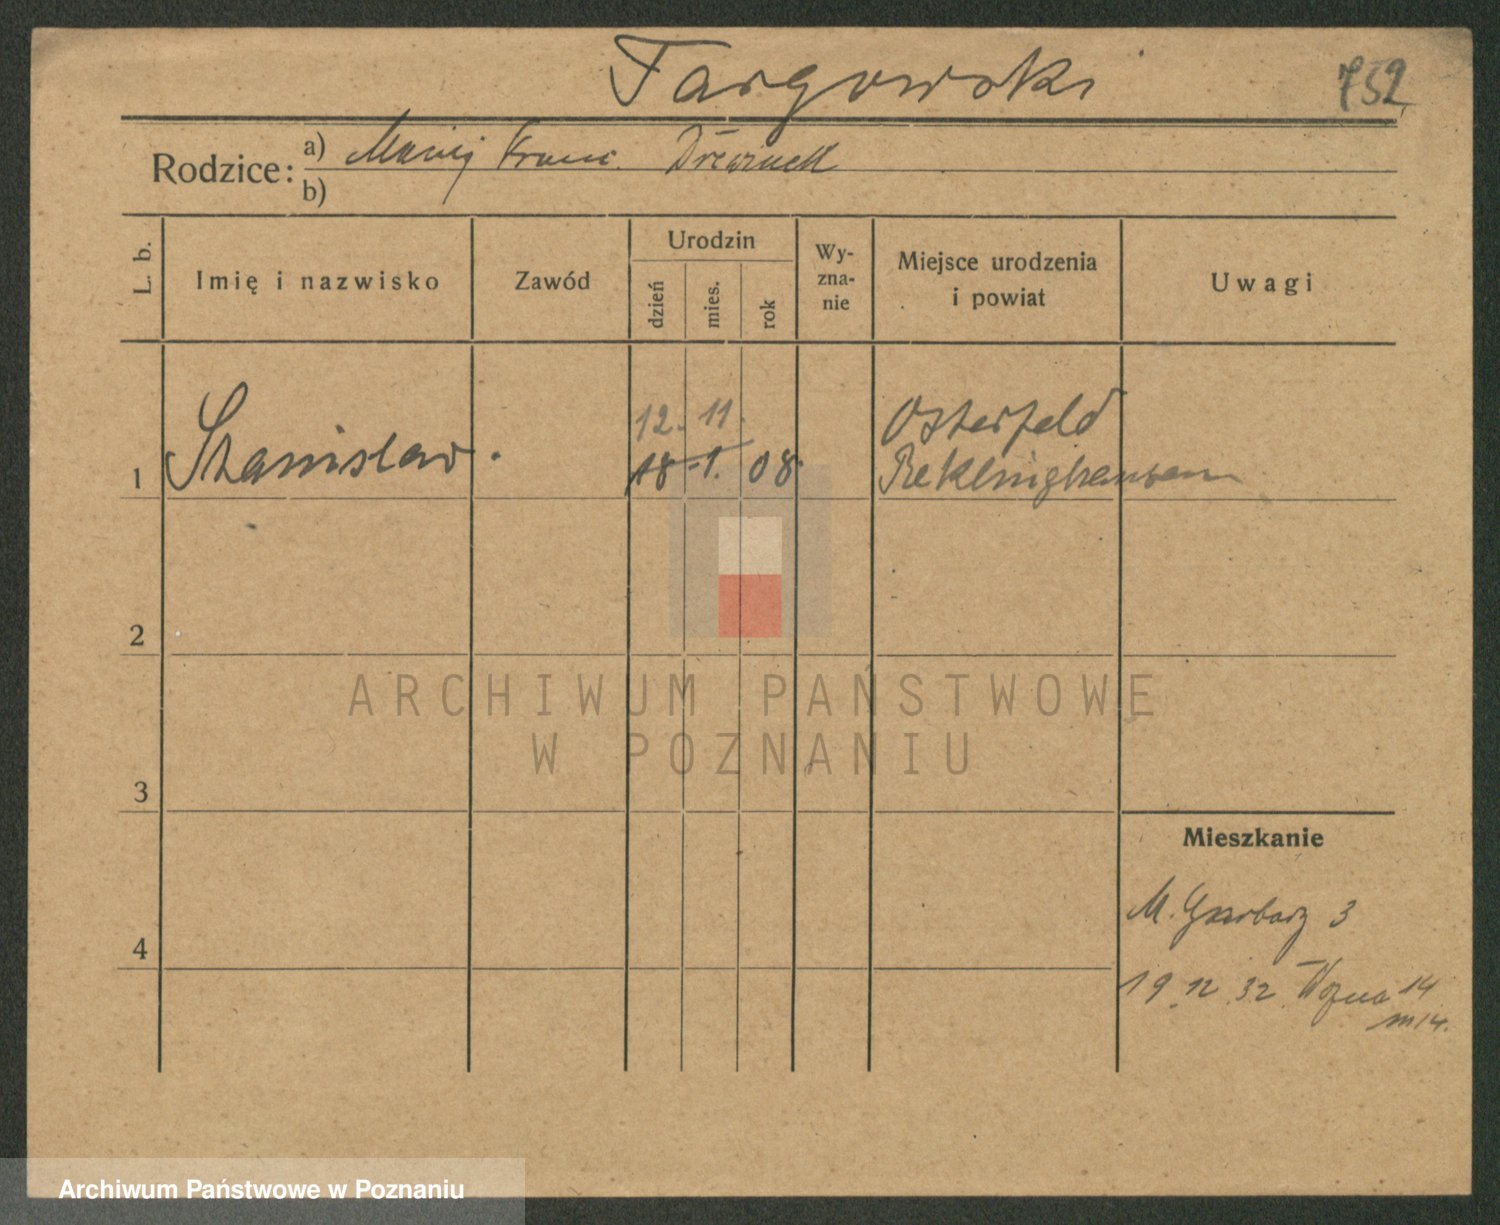 Targowski 752
Rodzice: a) Maciej Franc. Drewniack
b)
L. b. Imię i nazwisko Zawód Urodzin dzień mies. rok Wy-zna-nie Miejsce urodzenia i powiat Uwagi
12. 11. Osterfeld
1 Stanisław. 18 1. 08. Reklinghausen
2
ARCHIWUM PAŃSTWOWE
W POZNANIU
3
Mieszkanie
M. Garbary 3
4
19 12 32 Woźna 14
m 14.
Archiwum Państwowe w Poznaniu